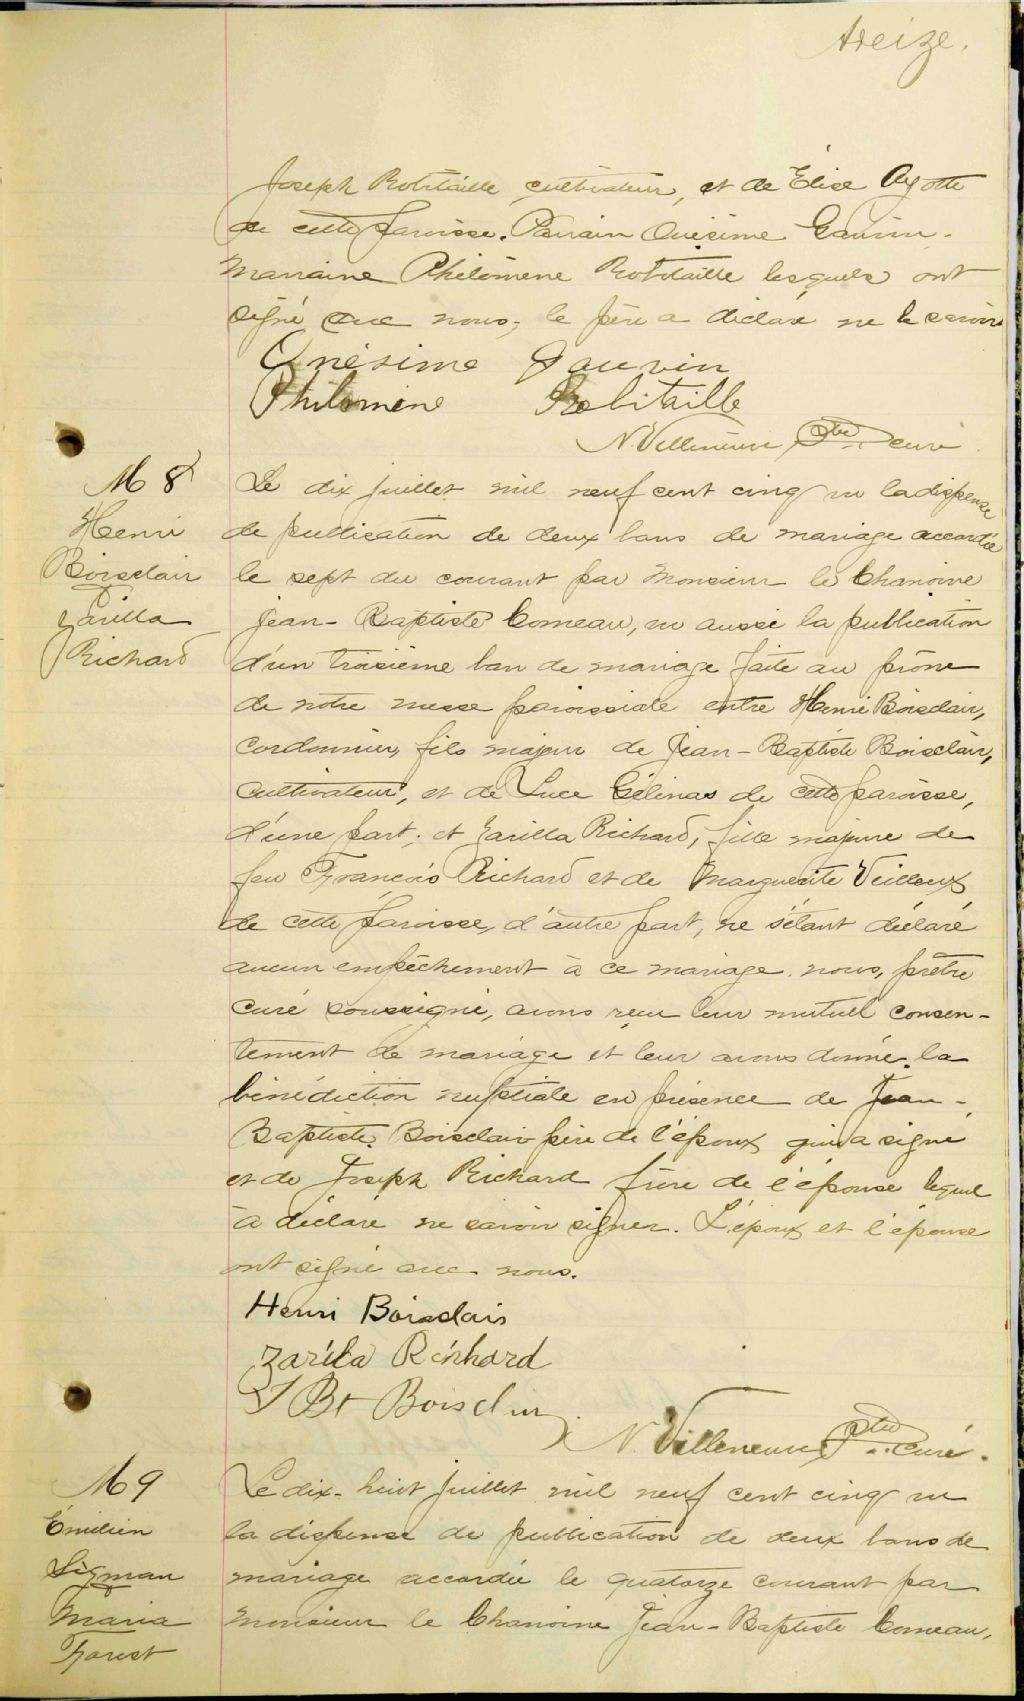 treize.
Joseph Robitaille, cultivateur, et de Élise Ayotte
de cette paroisse. Parrain Onésime Gauvin.
Marraine Philomène Robitaille lesquels ont
signé avec nous; le père a déclaré ne le savoir
Onésime Gauvin
Philomène Robitaille
N. Villeneuve Ptre curé
M 8
Henri
Boisclair
&
Zarilla
Richard
Le dix juillet mil neuf cent cinq vu la dispense
de publication de deux bans de mariage accordée
le sept du courant par Monsieur le Chanoine
Jean-Baptiste Comeau, vu aussi la publication
d'un troisième ban de mariage faite au prône
de notre messe paroissiale entre Henri Boisclair,
cordonnier, fils majeur de Jean-Baptiste Boisclair,
cultivateur, et de Luce Gélinas de cette paroisse,
d'une part; et Zarilla Richard, fille majeure de
feu François Richard et de Marguerite Veilleux
de cette paroisse, d'autre part, ne s'étant déclaré
aucun empêchement à ce mariage, nous, prêtre
curé soussigné, avons reçu leur mutuel consen-
tement de mariage et leur avons donné la
bénédiction nuptiale en présence de Jean-
Baptiste Boisclair père de l'époux qui a signé
et de Joseph Richard frère de l'épouse lequel
a déclaré ne savoir signer. L'époux et l'épouse
ont signé avec nous.
Henri Boisclair
Zarila Richard
J Bt Boisclair
N. Villeneuve Ptre curé.
M 9
Émilien
Sigman
&
Maria
Forest
Le dix-huit juillet mil neuf cent cinq vu
la dispense de publication de deux bans de
mariage accordée le quatorze courant par
Monsieur le Chanoine Jean-Baptiste Comeau,